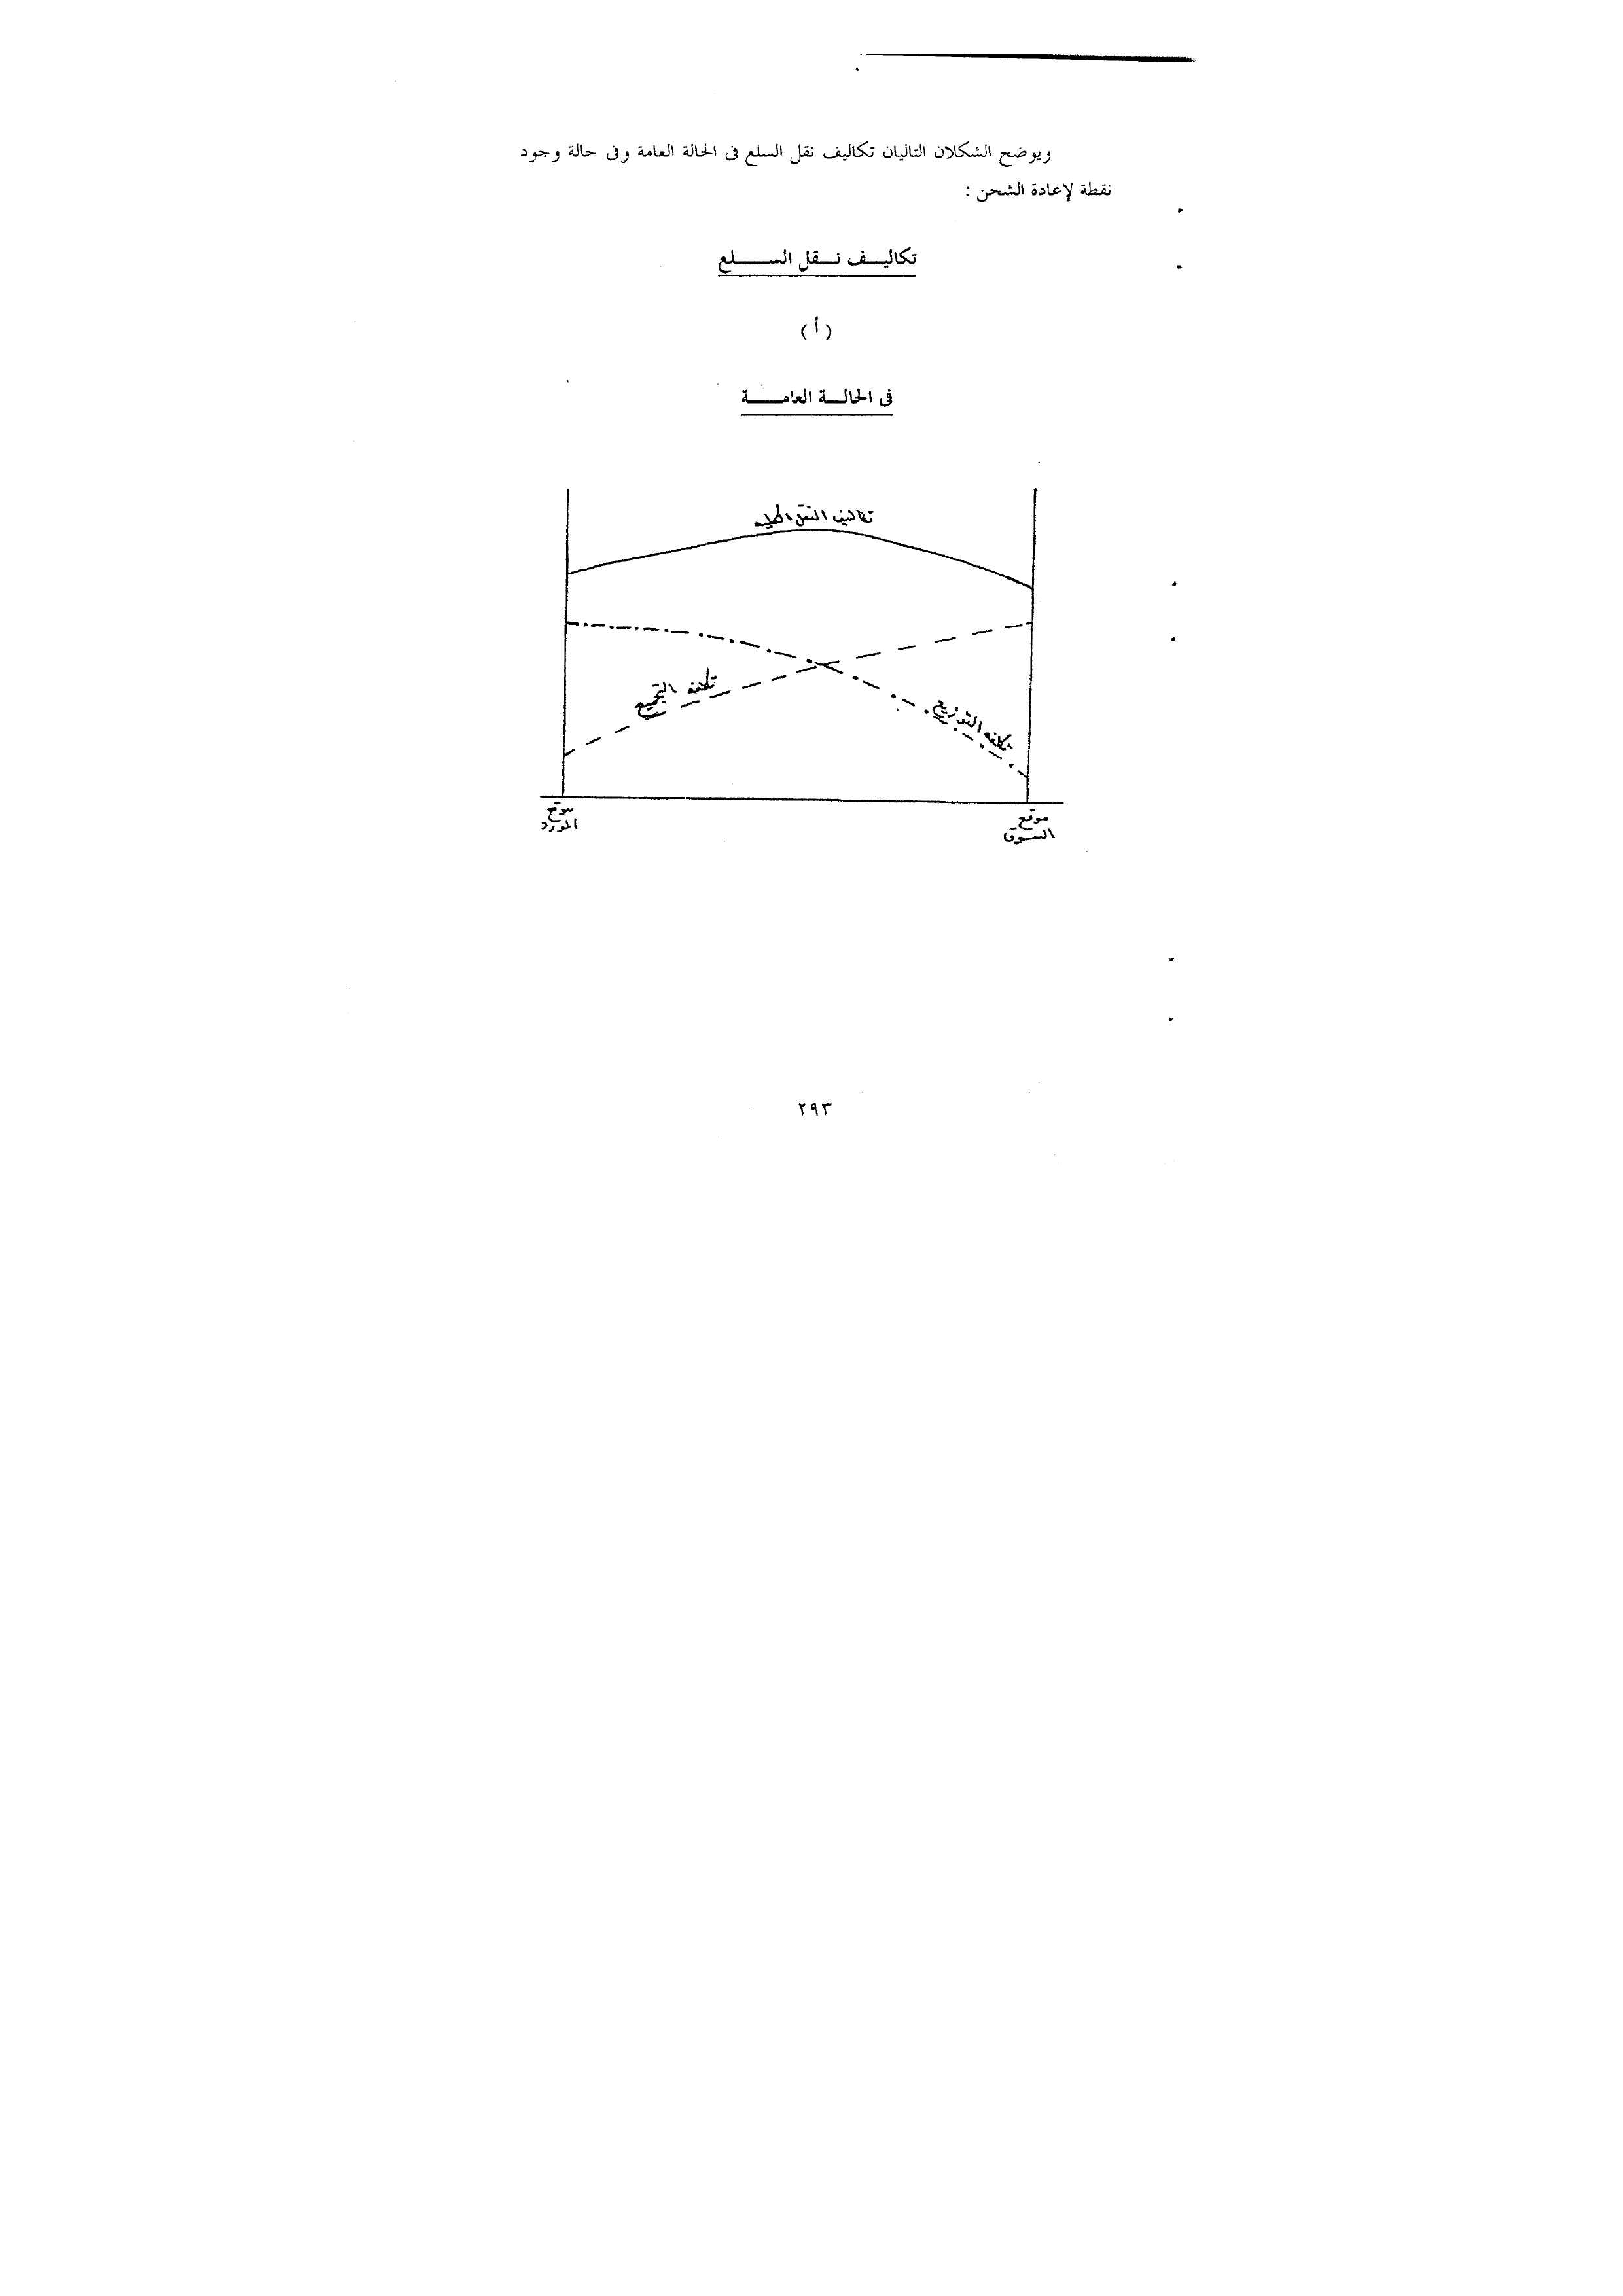 ويوضح الشكلان التاليان تكاليف نقل السلع فى الحالة العامة وفى حالة وجود
نقطة لإعادة الشحن :
تكاليف نقل السلع
( أ )
فى الحالة العامة
تكاليف النقل الكليه
تكلفه التجميع
تكلفه التوزيع
موقع
المورد
موقع
السوق
٢٩٣